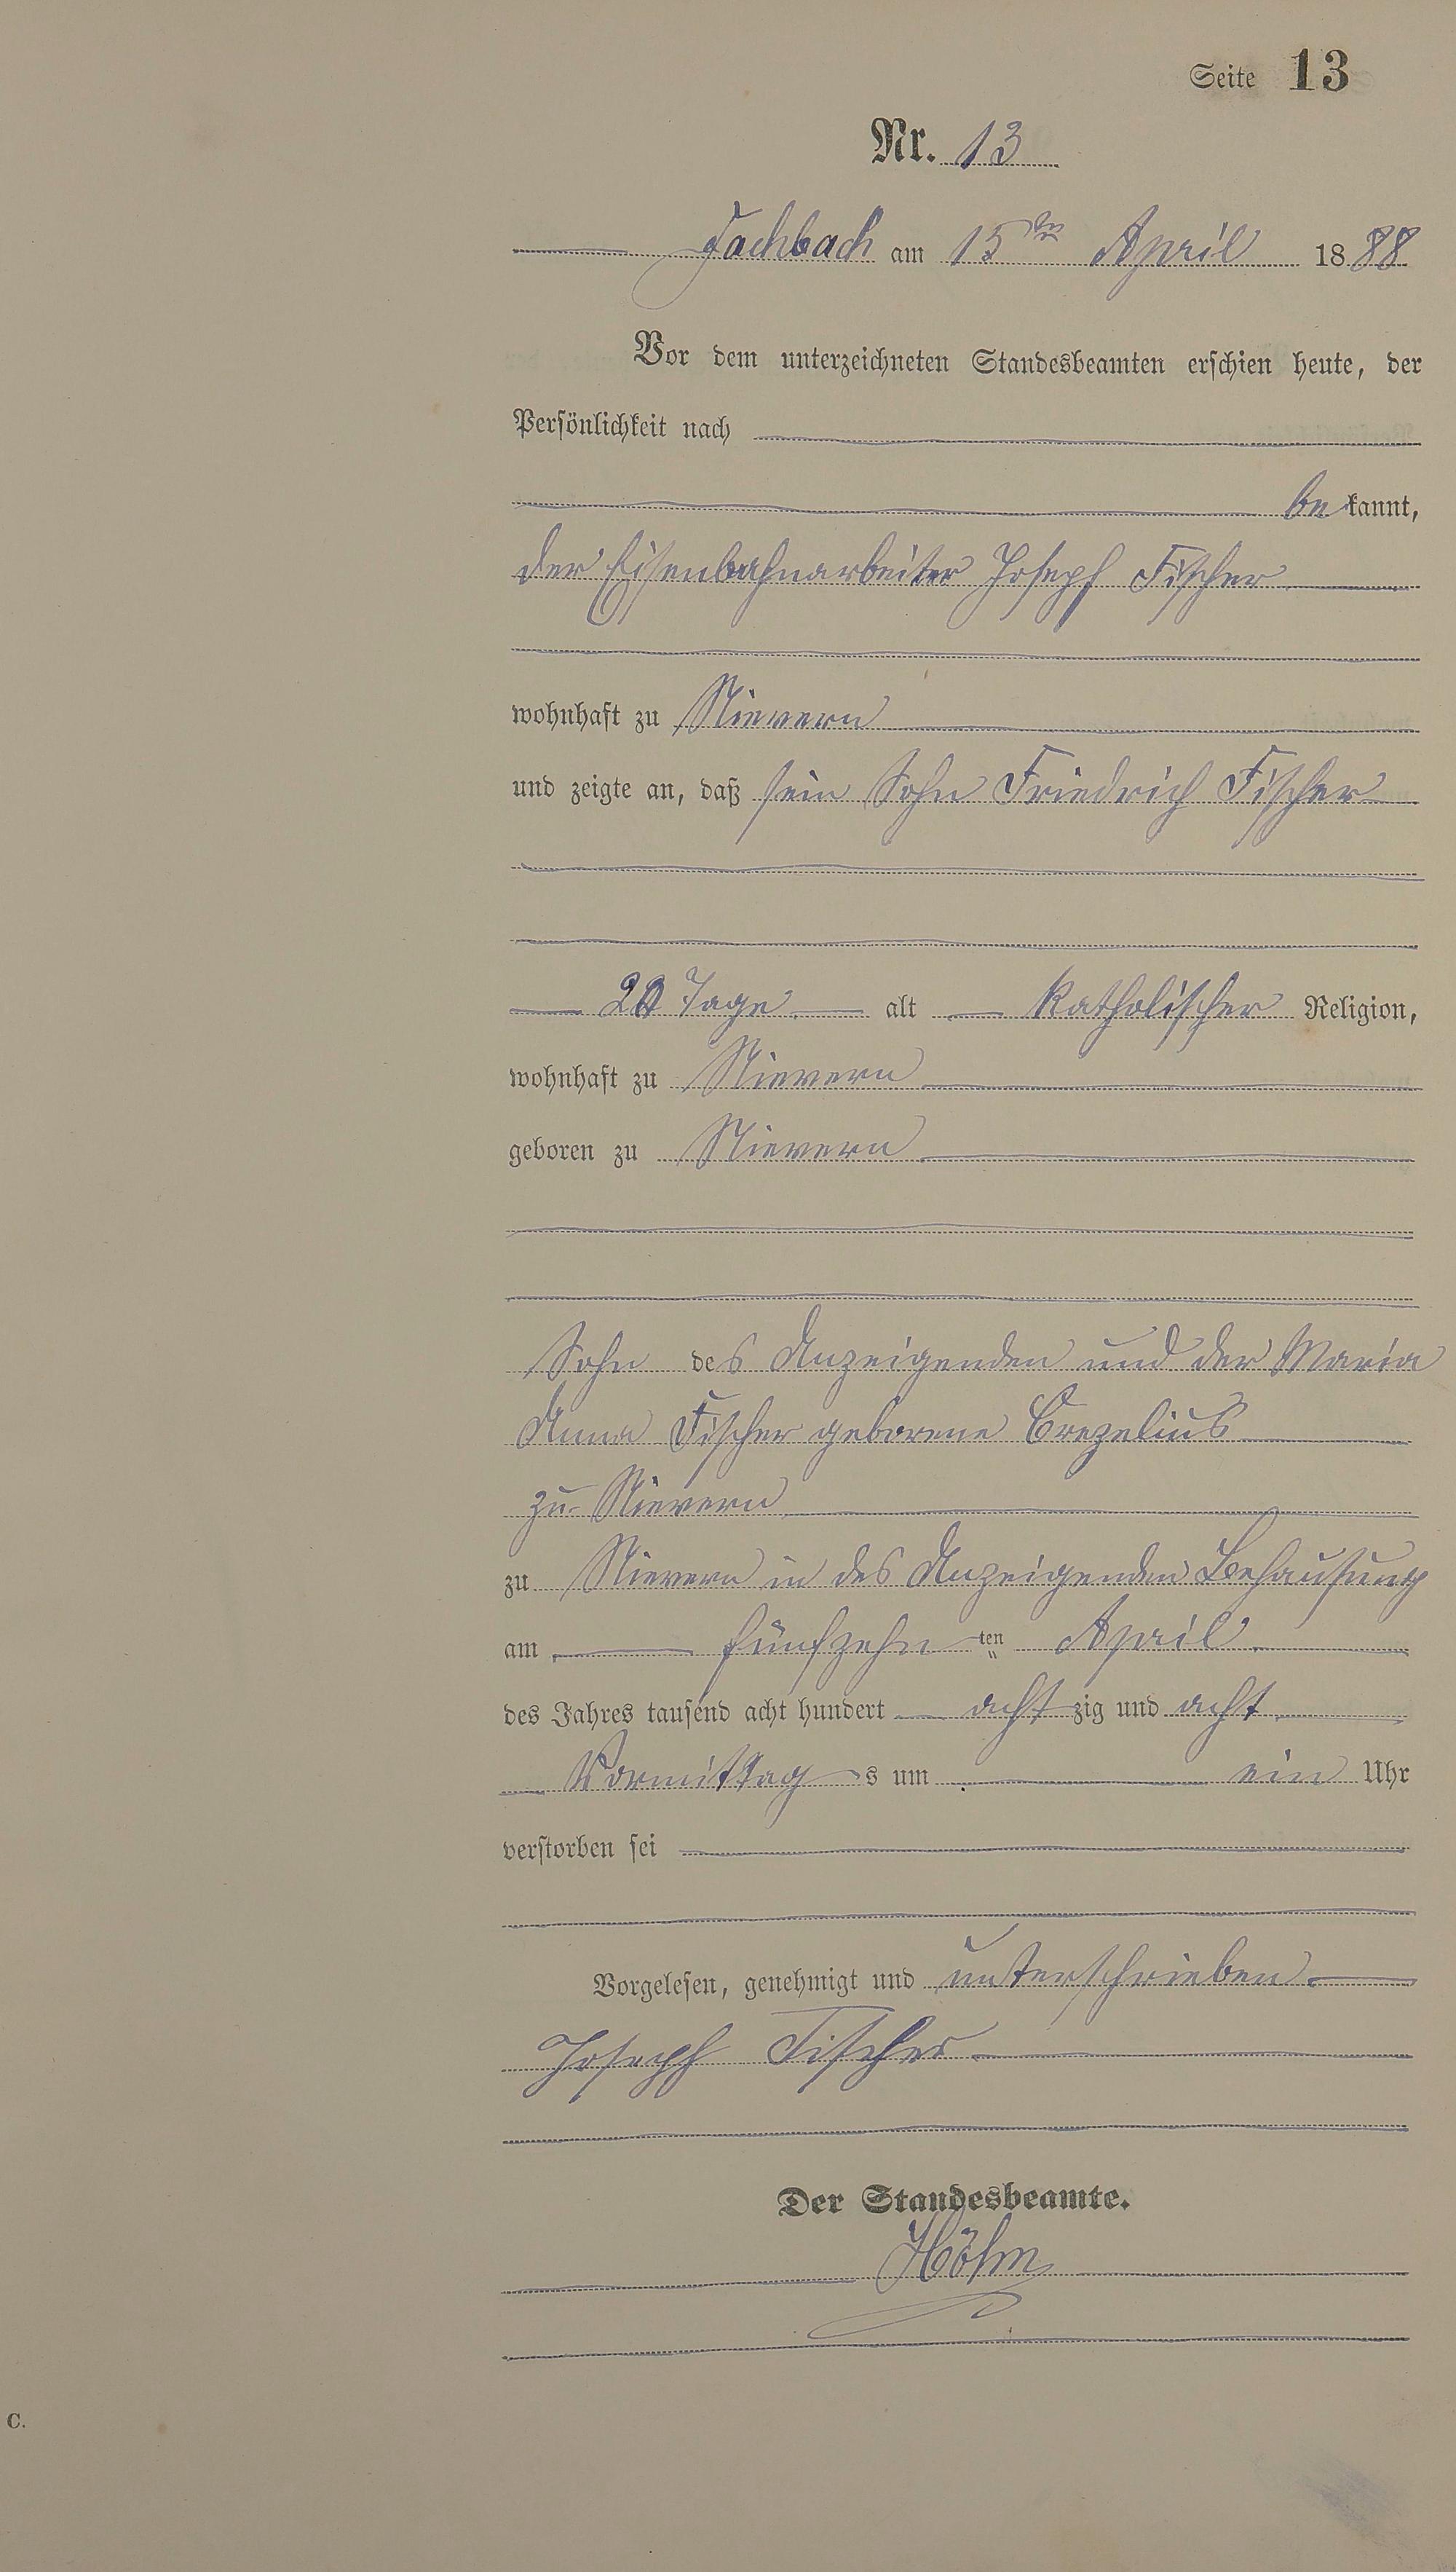 Seite 13
Nr. 13
Fachbach am 15ten April 1888
Vor dem unterzeichneten Standesbeamten erschien heute, der
Persönlichkeit nach
bekannt,
der Eisenbahnarbeiter Joseph Fischer
wohnhaft zu Nievern
und zeigte an, daß sein Sohn Friedrich Fischer
20 Tage alt katholischer Religion,
wohnhaft zu Nievern
geboren zu Nievern
Sohn des Anzeigenden und der Maria
Anna Fischer geborene Crezelius
zu Nievern
zu Nievern in des Anzeigenden Behausung
am fünfzehnten April
des Jahres tausend acht hundert achtzig und acht
Vormittags um ein Uhr
verstorben sei
Vorgelesen, genehmigt und unterschrieben
Joseph Fischer
Der Standesbeamte.
Höhn
C.